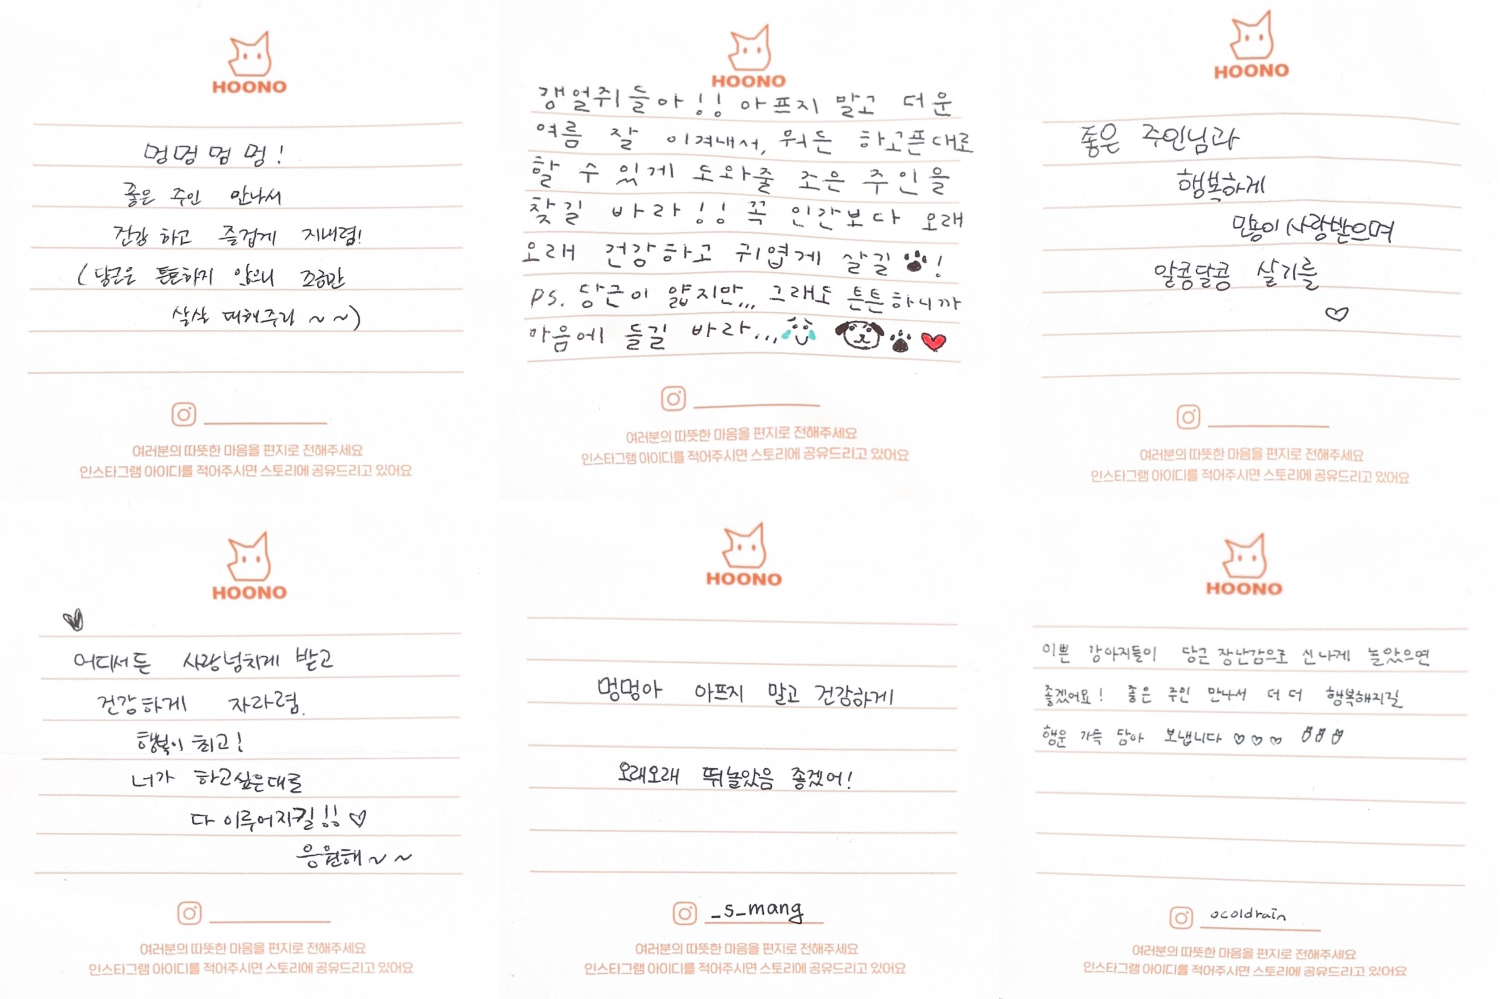 HOONO
멍멍 멈 멍!
좋은 주인 만나서
건강 하고 즐겁게 지내렴!
(당근은 튼튼하지 않으니 조금만
살살 대해주라 ~ ~)
여러분의 따뜻한 마음을 편지로 전해주세요
인스타그램 아이디를 적어주시면 스토리에 공유드리고 있어요
HOONO
갱얼쥐들아!! 아프지 말고 더운
여름 잘 이겨내서, 뭐든 하고픈대로
할 수 있게 도와줄 조은 주인을
찾길 바라!! 꼭 인간보다 오래
오래 건강하고 귀엽게 살길!
PS. 당근이 얇지만,,, 그래도 튼튼하니까
마음에 들길 바라,,,
여러분의 따뜻한 마음을 편지로 전해주세요
인스타그램 아이디를 적어주시면 스토리에 공유드리고 있어요
HOONO
좋은 주인님과
행복하게
많이 사랑받으며
알콩달콩 살기를
♡
여러분의 따뜻한 마음을 편지로 전해주세요
인스타그램 아이디를 적어주시면 스토리에 공유드리고 있어요
HOONO
어디서든 사랑넘치게 받고
건강하게 자라렴.
행복이 최고!
너가 하고싶은대로
다 이루어지길!! ♡
응원해 ~ ~
여러분의 따뜻한 마음을 편지로 전해주세요
인스타그램 아이디를 적어주시면 스토리에 공유드리고 있어요
HOONO
멍멍아 아프지 말고 건강하게
오래오래 뛰놀았음 좋겠어!
_s_mang
여러분의 따뜻한 마음을 편지로 전해주세요
인스타그램 아이디를 적어주시면 스토리에 공유드리고 있어요
HOONO
이쁜 강아지들이 당근 장난감으로 신나게 놀았으면
좋겠어요! 좋은 주인 만나서 더 더 행복해지길
행운 가득 담아 보냅니다 ♡ ♡ ♡
ocoldrain
여러분의 따뜻한 마음을 편지로 전해주세요
인스타그램 아이디를 적어주시면 스토리에 공유드리고 있어요